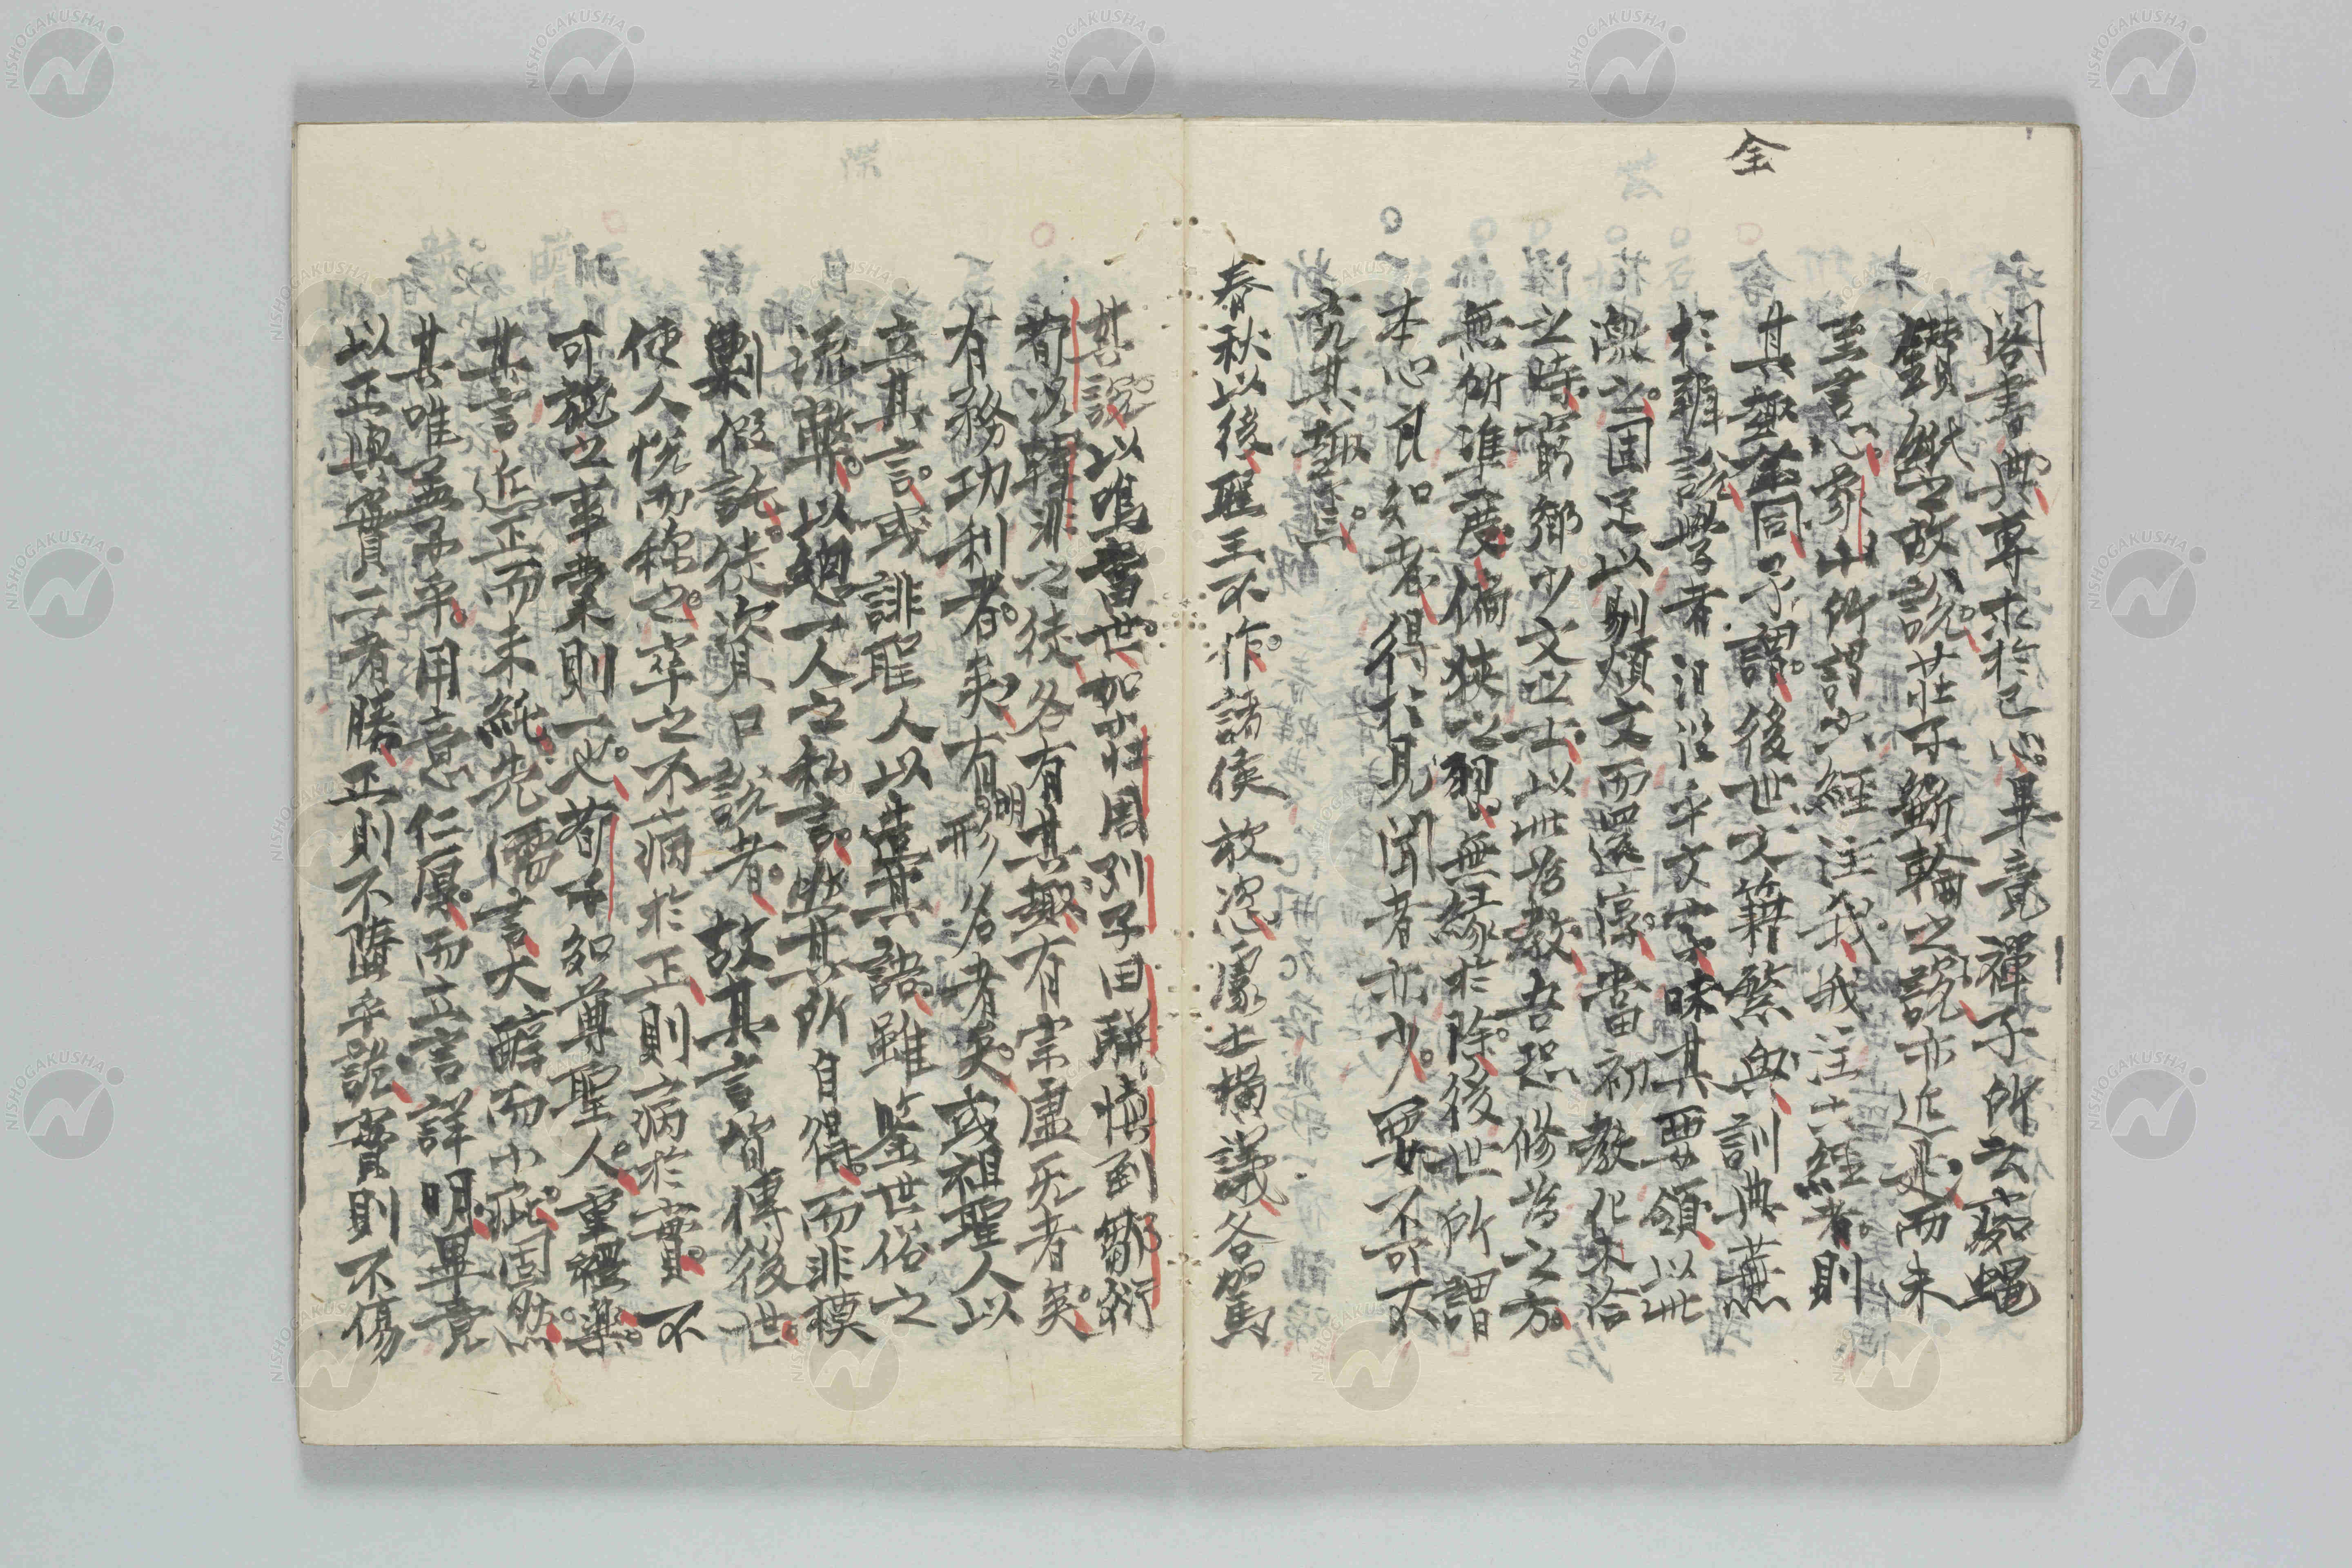 全
閣書典專求於己心畢竟禪子所云痴蠅
鑽紙之故說莊子斲輪之說亦近是而未
至言心象山所謂六經注我我注六經者則
其趣全同予謂後世文籍繁與訓典蕪
於辭說學者汨沒乎文字昧其要領以此
藥之固足以剔煩文而還淳當初敎化未洽
之時窮鄉少文之士以此爲敎吾恐修爲之方
無所準度偏狹之習無緣於除後世所謂
本心良知者得於見聞者亦少要不可不
究其趣焉
春秋以後聖王不作諸侯放恣處士橫議各爲
其說以鳴當世如莊周列子田騈愼到鄒衍
荀況韓非之徒各有其趣有宗虛无者矣
有務功利者矣有明形名者矣或祖聖人以
立其言或誹聖人以售其語雖鑒世俗之
流弊以一人之私言而其所自得而非模
剿假託徒資口說者故其言皆傳後世
使人悅而稱之率之不病於正則病於實不
可施之事業則一也荀子知尊聖人重禮樂
其言近正而未純先儒言大醇而小疵固然
其唯孟子乎用意仁厚而立言詳明畢竟
以正與實二者勝正則不陷乎詭實則不傷